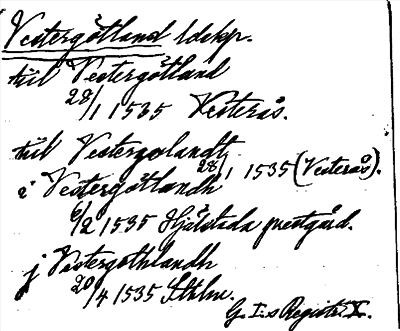 Vestergötland ldskp.
till Vestergötland
28/1 1535 Vesterås.
till Vestergolandt
28/1 1535 (Vesterås).
i Vestergötlandh
6/2 1535 Hjälstada prestgård.
j Vestergothlandh
20/4 1535 Sthlm.
G. I:s Registr. X.